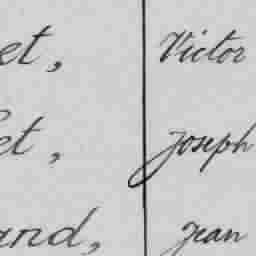 et, Victor
et, Joseph
and, Jean